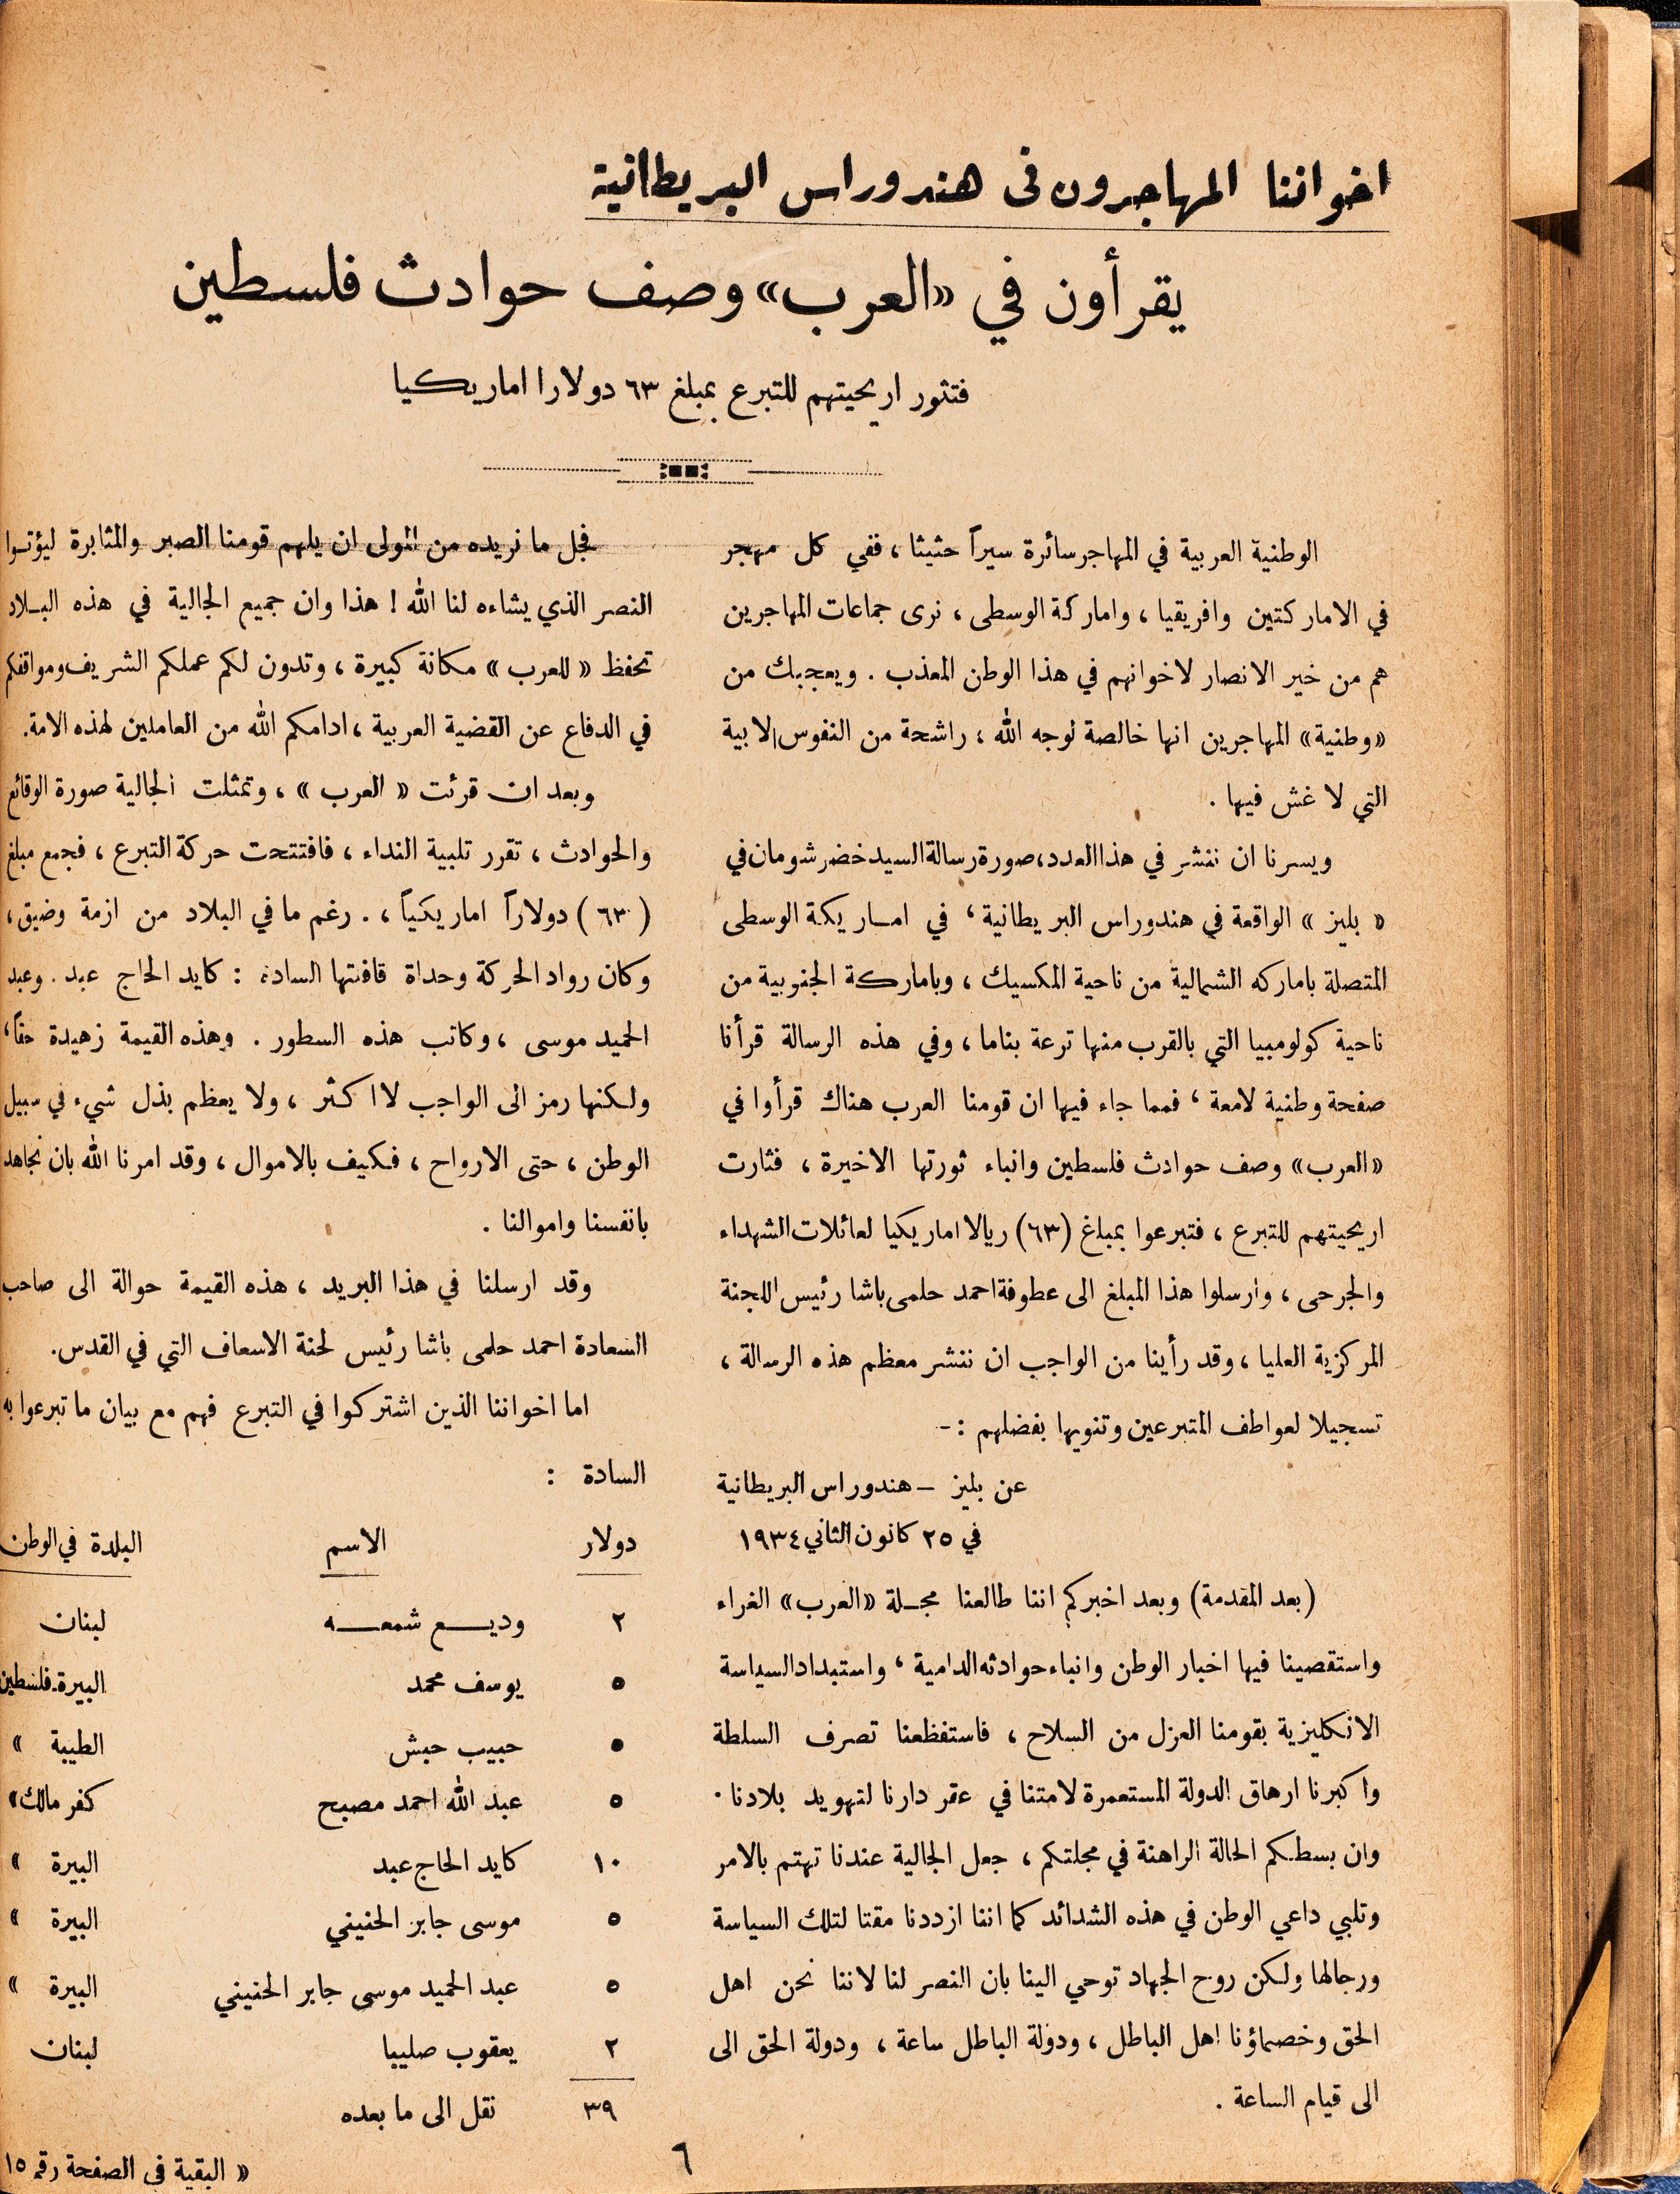 اخواننا المهاجرون فى هندوراس البريطانية
يقرأون في «العرب» وصف حوادث فلسطين
فتثور اريحيتهم للتبرع بمبلغ ٦٣ دولارا اماريكيا
الوطنية العربية في المهاجر سائرة سيراً حثيثا ، ففي كل مهجر
في الاماركتين وافريقيا ، واماركة الوسطى ، نرى جماعات المهاجرين
هم من خير الانصار لاخوانهم في هذا الوطن المعذب . ويعجبك من
«وطنية» المهاجرين انها خالصة لوجه الله ، راشحة من النفوس الابية
التي لا غش فيها .
ويسرنا ان ننشر في هذا العدد، صورة رسالة السيد خضر شومان في
« بليز » الواقعة في هندوراس البريطانية ، في امـاريكة الوسطى
المتصلة باماركه الشمالية من ناحية المكسيك ، وباماركة الجنوبية من
ناحية كولومبيا التي بالقرب منها ترعة بناما ، وفي هذه الرسالة قرأنا
صفحة وطنية لامعة ، فمما جاء فيها ان قومنا العرب هناك قرأوا في
«العرب» وصف حوادث فلسطين وانباء ثورتها الاخيرة ، فثارت
اريحيتهم للتبرع ، فتبرعوا بمبلغ (٦٣) ريالا اماريكيا لعائلات الشهداء
والجرحى ، وارسلوا هذا المبلغ الى عطوفة احمد حلمى باشا رئيس اللجنة
المركزية العليا ، وقد رأينا من الواجب ان ننشر معظم هذه الرسالة ،
تسجيلا لعواطف المتبرعين وتنويها بفضلهم :-
عن بليز – هندوراس البريطانية
في ٢٥ كانون الثاني ١٩٣٤
(بعد المقدمة) وبعد اخبركم اننا طالعنا مجـلة «العرب» الغراء
واستقصينا فيها اخبار الوطن وانباء حوادثه الدامية ، واستبداد السياسة
الانكليزية بقومنا العزل من السلاح ، فاستفظعنا تصرف السلطة
واكبرنا ارهاق الدولة المستعمرة لامتنا في عقر دارنا لتهويد بلادنا .
وان بسطكم الحالة الراهنة في مجلتكم ، جعل الجالية عندنا تهتم بالامر
وتلبي داعي الوطن في هذه الشدائد كما اننا ازددنا مقتا لتلك السياسة
ورجالها ولكن روح الجهاد توحي الينا بان النصر لنا لاننا نحن اهل
الحق وخصماؤنا اهل الباطل ، ودولة الباطل ساعة ، ودولة الحق الى
الى قيام الساعة .
فجل ما نريده من المولى ان يلهم قومنا الصبر والمثابرة ليؤتـوا
النصر الذي يشاءه لنا الله ! هذا وان جميع الجالية في هذه البـلاد
تحفظ « للعرب » مكانة كبيرة ، وتدون لكم عملكم الشريف ومواقفكم
في الدفاع عن القضية العربية ، ادامكم الله من العاملين لهذه الامة.
وبعد ان قرئت « العرب » ، وتمثلت الجالية صورة الوقائع
والحوادث ، تقرر تلبية النداء ، فافتتحت حركة التبرع ، فجمع مبلغ
(٦٣) دولاراً اماريكياً ، . رغم ما في البلاد من ازمة وضيق ،
وكان رواد الحركة وحداة قافلتها السادة : كايد الحاج عبد . وعبد
الحميد موسى ، وكاتب هذه السطور . وهذه القيمة زهيدة حقاً ،
ولكنها رمز الى الواجب لا اكثر ، ولا يعظم بذل شيء في سبيل
الوطن ، حتى الارواح ، فكيف بالاموال ، وقد امرنا الله بان نجاهد
بانفسنا واموالنا .
وقد ارسلنا في هذا البريد ، هذه القيمة حوالة الى صاحب
السعادة احمد حلمى باشا رئيس لجنة الاسعاف التي في القدس.
اما اخواننا الذين اشتركوا في التبرع فهم مع بيان ما تبرعوا به
السادة :
دولار الاسم البلدة في الوطن
٢ وديـــع شمعـــه لبنان
٥ يوسف محمد البيرة.فلسطين
٥ حبيب حبش الطيبة »
٥ عبد الله احمد مصبح كفر مالك »
١٠ كايد الحاج عبد البيرة »
٥ موسى جابر الحنيني البيرة »
٥ عبد الحميد موسى جابر الحنيني البيرة »
٢ يعقوب صليبا لبنان
٣٩ نقل الى ما بعده
« البقية فى الصفحة رقم ١٥
٦